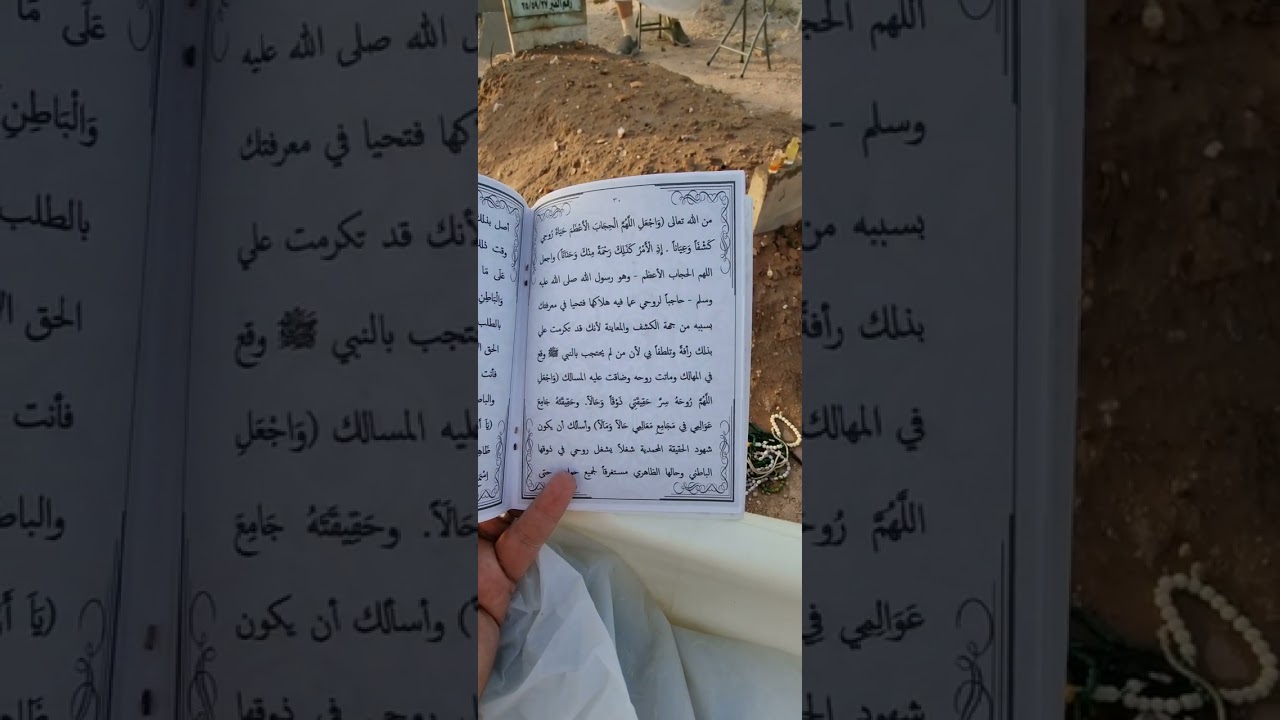 رقم القبر ٢٥/٥٩/٢٧
٣٠
من الله تعالى (وَاجْعَلِ اللَّهُمَّ الْحِجَابَ الْأَعْظَمَ حَيَاةَ رُوحِي
كَشْفاً وَعِيَاناً . إِذِ الْأَمْرُ كَذَلِكَ رَحْمَةً مِنْكَ وَحَنَاناً) واجعل
اللهم الحجاب الأعظم - وهو رسول الله صلى الله عليه
وسلم - حاجباً لروحي عما فيه هلاكها فتحيا في معرفتك
بسببه من جهة الكشف والمعاينة لأنك قد تكرمت علي
بذلك رأفةً وتلطفاً بي لأن من لم يحتجب بالنبي ﷺ وقع
في المهالك وماتت روحه وضاقت عليه المسالك (وَاجْعَلِ
اللَّهُمَّ رُوحَهُ سِرَّ حَقِيقَتِي ذَوْقاً وَحَالاً. وحَقِيقَتَهُ جَامِعَ
عَوَالِمِي فِي مَجَامِعِ مَعَالِمِي حَالاً وَمَآلاً) وأسألك أن يكون
شهود الحقيقة المحمدية شغلاً يشغل روحي في ذوقها
الباطني وحالها الظاهري مستغرقاً لجميع حتى
أصل بذلك
وقت ذلك
عَلَى مَا
وَالْبَاطِنِ
بالطلب
الحق
فأنت
والباط